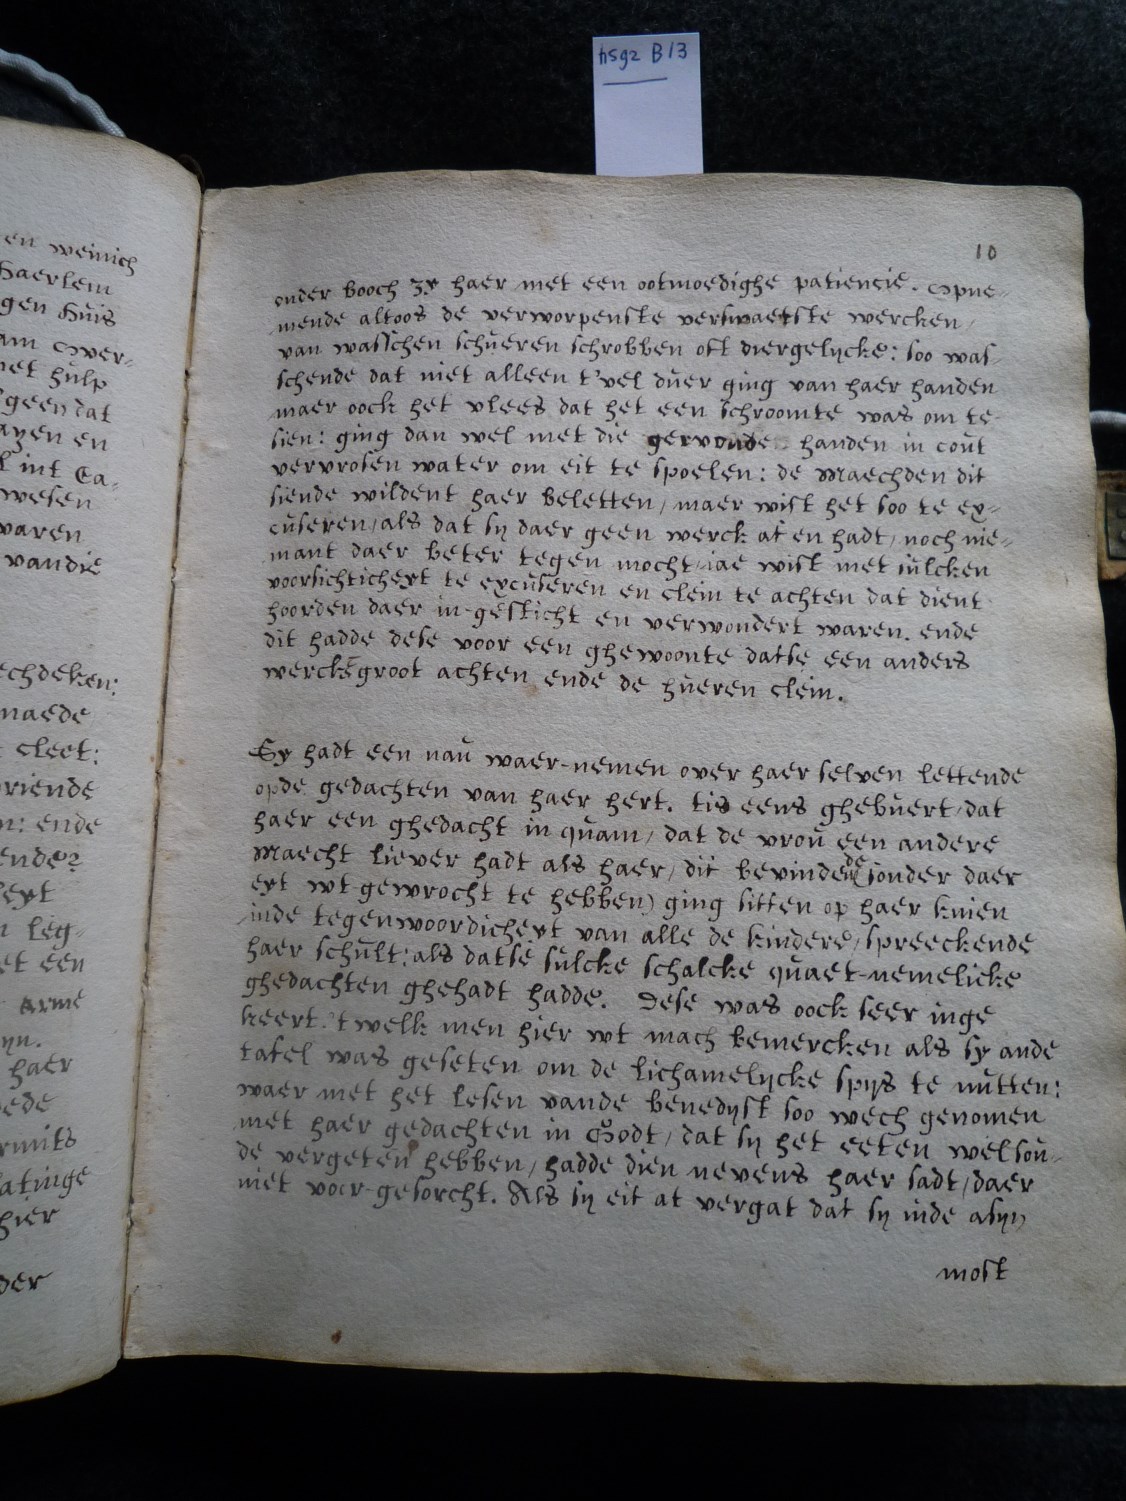 hsg2 B13
10
en weinich
Haerlem
gen huis
am over-
net hulp
geen dat
ayen en
l int Ca-
wesen
waren
van die
echdeken:
maede
cleet:
vriende
n: ende
ende?
leyt
n leg-
et een
arme
yn.
haer
ede
rmits
latinge
hier
der
onder booch zy haer met een ootmoedighe patiencie. Opne-
mende altoos de verworpenste verswaetste wercken,
van wasschen schueren schrobben oft diergelycke: soo was-
schende dat niet alleen t'vel duer ging van haer handen
maer oock het vlees dat het een schroomte was om te
sien: ging dan wel met die gewonde handen in cout
vervrosen water om eit te spoelen: de Maechden dit
siende wildent haer beletten, maer wist het soo te ex-
cuseren, als dat sy daer geen werck af en hadt, noch nie-
mant daer beter tegen mocht, iae wist met sulcken
voorsichticheyt te excuseren en clein te achten dat dient
hoorden daer in-gesticht en verwondert waren. ende
dit hadde dese voor een ghewoonte datse een anders
wercke groot achten ende de hueren clein.
Sy hadt een nau waer-nemen over haer selven lettende
opde gedachten van haer hert. tis eens ghebuert, dat
haer een ghedacht in quam, dat de vrou een andere
Maecht liever hadt als haer, dit bevindende (sonder daer
eyt wt gewrocht te hebben) ging sitten op haer knien
inde tegenwoordicheyt van alle de kindere, spreeckende
haer schult: als datse sulcke schalcke quaet-nemelicke
ghedachten ghehadt hadde. Dese was oock seer inge
keert. 't welk men hier wt mach bemercken als sy ande
tafel was geseten om de lichamelycke spys te nutten:
waer met het lesen vande benedyst soo wech genomen
met haer gedachten in Godt, dat sy het eeten wel sou-
de vergeten hebben, hadde dien nevens haer sadt, daer
niet voor-gesorcht. Als sy eit at vergat dat sy inde asyn
most